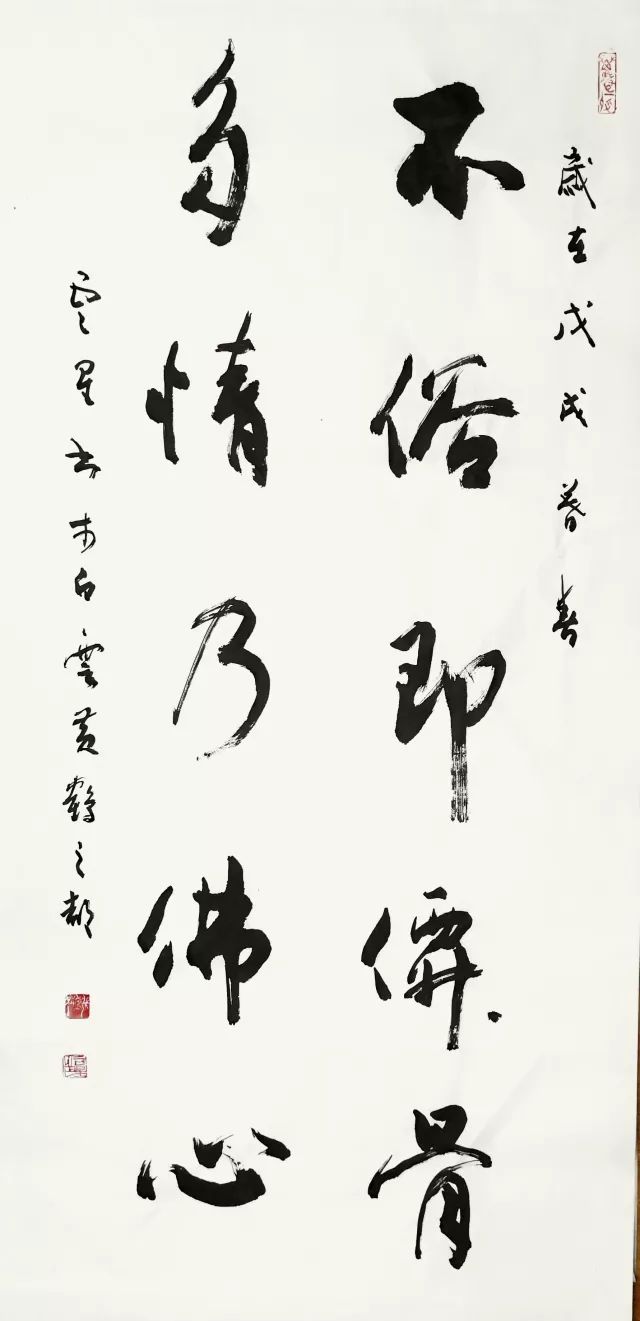 歲在戊戌暮春
不俗即僊骨
多情乃佛心
雲星書於白雲黃鶴之都